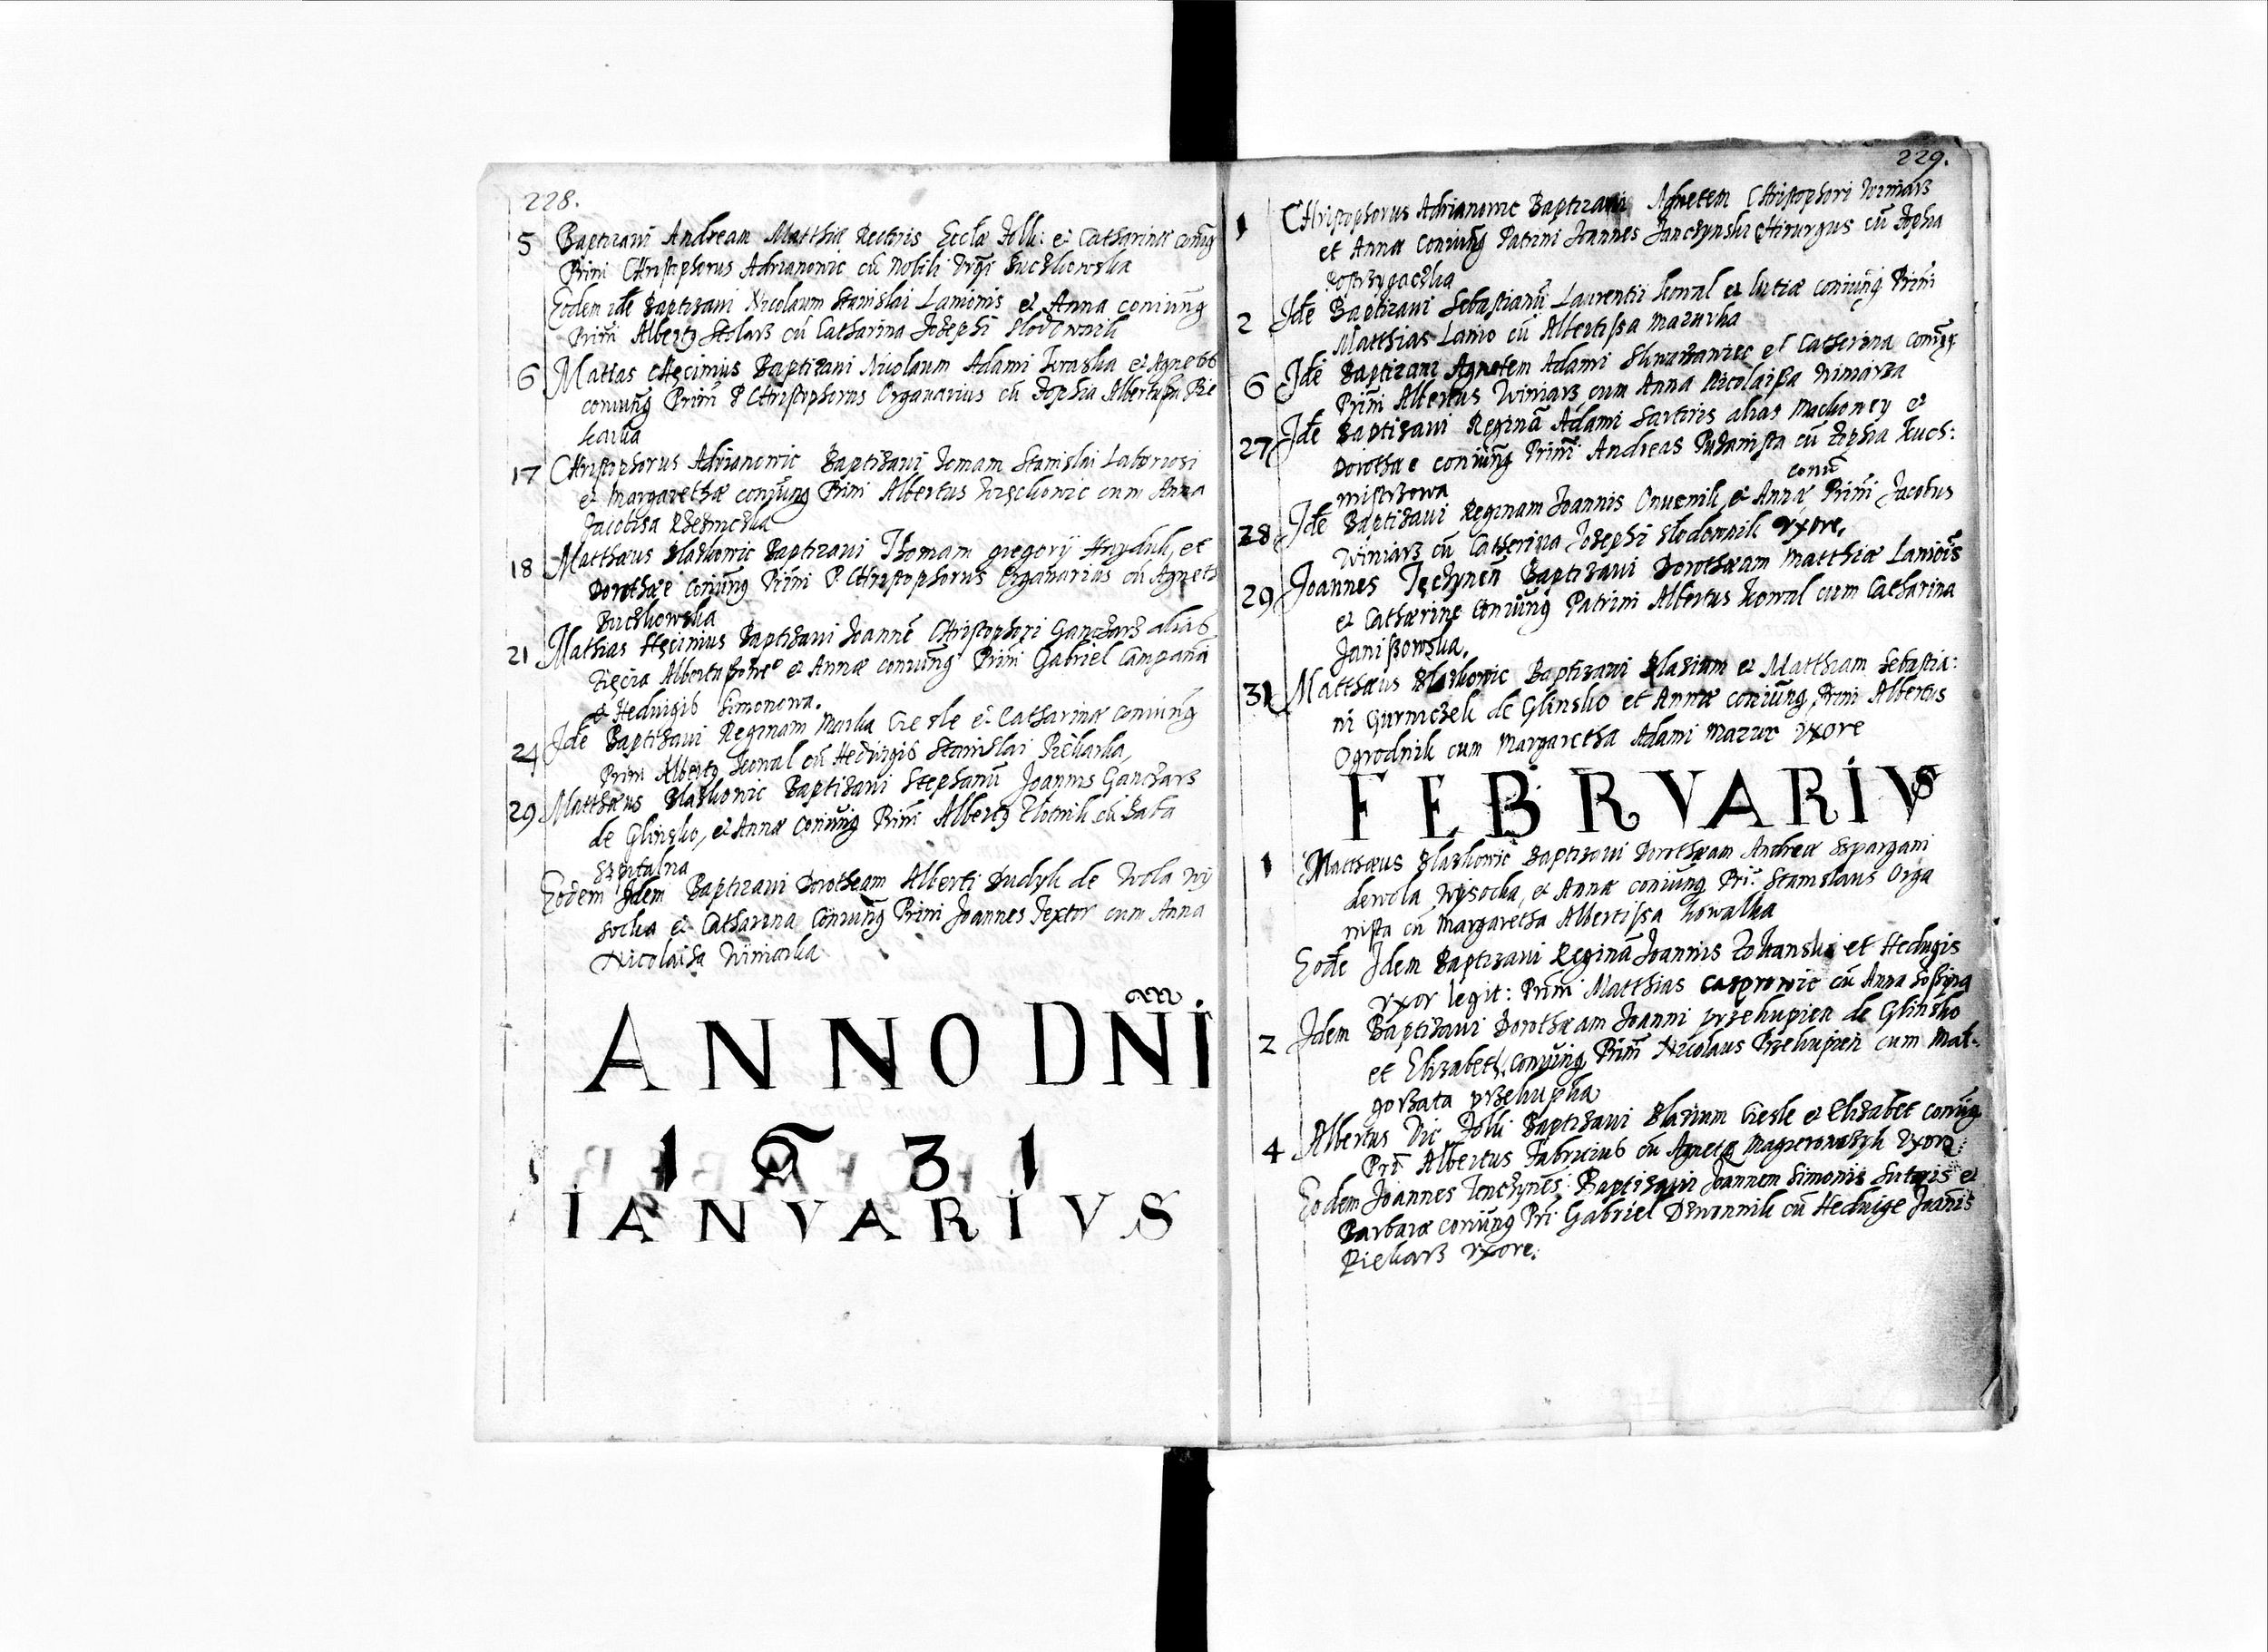 228.
5 Baptizavi Andream Matthiæ Rectoris Eccłæ Zolk: et Catharinæ coniūg
Prini Christophorus Adrianowic cū Nobili Buczkowska
Eodem idē Baptizavi Nicolaum Stanislai Lanionis et Anna coniung
Prini Albertg Stolarz cū Catharina Josephi Slodownik
6 Mattas Baptizavi Nicolaum Adami Kraska et Agnetis
coniung Prini P Christophorus Organarius cū Zophia Pie
karka
17 Christophorus Adrianowic Baptizavi Tomam Stanislai Laboriosi
et Margarethæ coniung Prini Albertus cum Anna
Jacobisa
18 Matthæus Blaskowic Baptizavi Thomam gregorij Hnyduk, et
Dorothæe coniung Prini P. Christophorus Organarius cū Agneth
Buczkowska
21 Mathias Baptizavi Joannē Christophori Ganczarz alias
Zięcia et Annæ coniung Prini Gabriel Campana
et Hedvigis Simonowa.
24 Jdē Baptizavi Reginam Marka Ciesle et Catharinæ coniung
Prini Albertg Kowal cū Hedvigis Stanislai Piekarka,
29 Matthæus Blaskowic Baptizavi Stephanū Joannis Ganczarz
de Glinsko, et Annæ coniung Prini Albertg Zlotnik cū Baba
Szpitalna
Eodem Jdem Baptizavi Dorotheam Alberti Dudyk de Wola Wy
socka et Catharina Coniung Prini Joannes Textor cum Anna
Nicolaisa Winiarka
ANNO DNI
1631
IANVARIVS
229.
1 Christophorus Adrianowic Baptizavi Agnetem Christophori Winiarz
et Annæ coniung Patrini Joannes Janczynski Chirurgus cū Zopha
Postrzygaczka
2 Jdē Baptizavi Sebastianū Laurentii Kowal et Lutiæ coniung Prini
Matthias Lanio cū Albertissa Mazurka
6 Jdē Baptizavi Agnetem Adami et Catherina coniug
Prini Albertus Winiarz cum Anna Nicolaissa Winiarza
27 Jdē Baptizavi Reginā Adami Sartiris alias et
Dorothæe coniung Prini Andreas cū Zophia Kuch:
mistrzowa
coniu
28 Jdē Baptizavi Reginam Joannis et Annæ Prini Jacobus
Winiarz cū Catherina Josephi Slodownik Vxore,
29 Joannes Baptizavi Dorothæam Matthiæ Laniois
et Catherinę Coniung Patrini Albertus Kowal cum Catharina
Janissowska,
31 Matthæus Blaskowic Baptizavi Blasium et Matthiam Sebastia:
ni de Glinsko et Annæ coniung Prini Albertus
Ogrodnik cum Margaretha Adami Mazur Vxore
FEBRVARIVS
1 Matthæus Blaskowic Baptizavi Dorotheam Andreæ
dewola Wysocka, et Annæ coniung Pri: Stanislaus Orga
nista cū Margaretha Albertissa Kowalka
Eodē Jdem Baptizavi Reginā Joannis et Hedvigis
Vxor legit: Prini Matthias Casprowic cū Anna
2 Jdem Baptizavi Dorothæam Joanni przekupien de Glinsko
et Elizabeth coniung Prini Nicolaus Przekupien cum Mal-
gorzata przekupka
4 Albertus Vic Zolk: Baptizavi Blasium Ciesle et Elizabet coniūg
Pri Albertus Fabricius cū Agneta Vxore
Eodem Joannes Baptizavi Joannem Simonis Sutoris et
Barbaræ coniung Pri Gabriel Dzwonnik cū Hedvige Joanis
Piekarz Vxore.